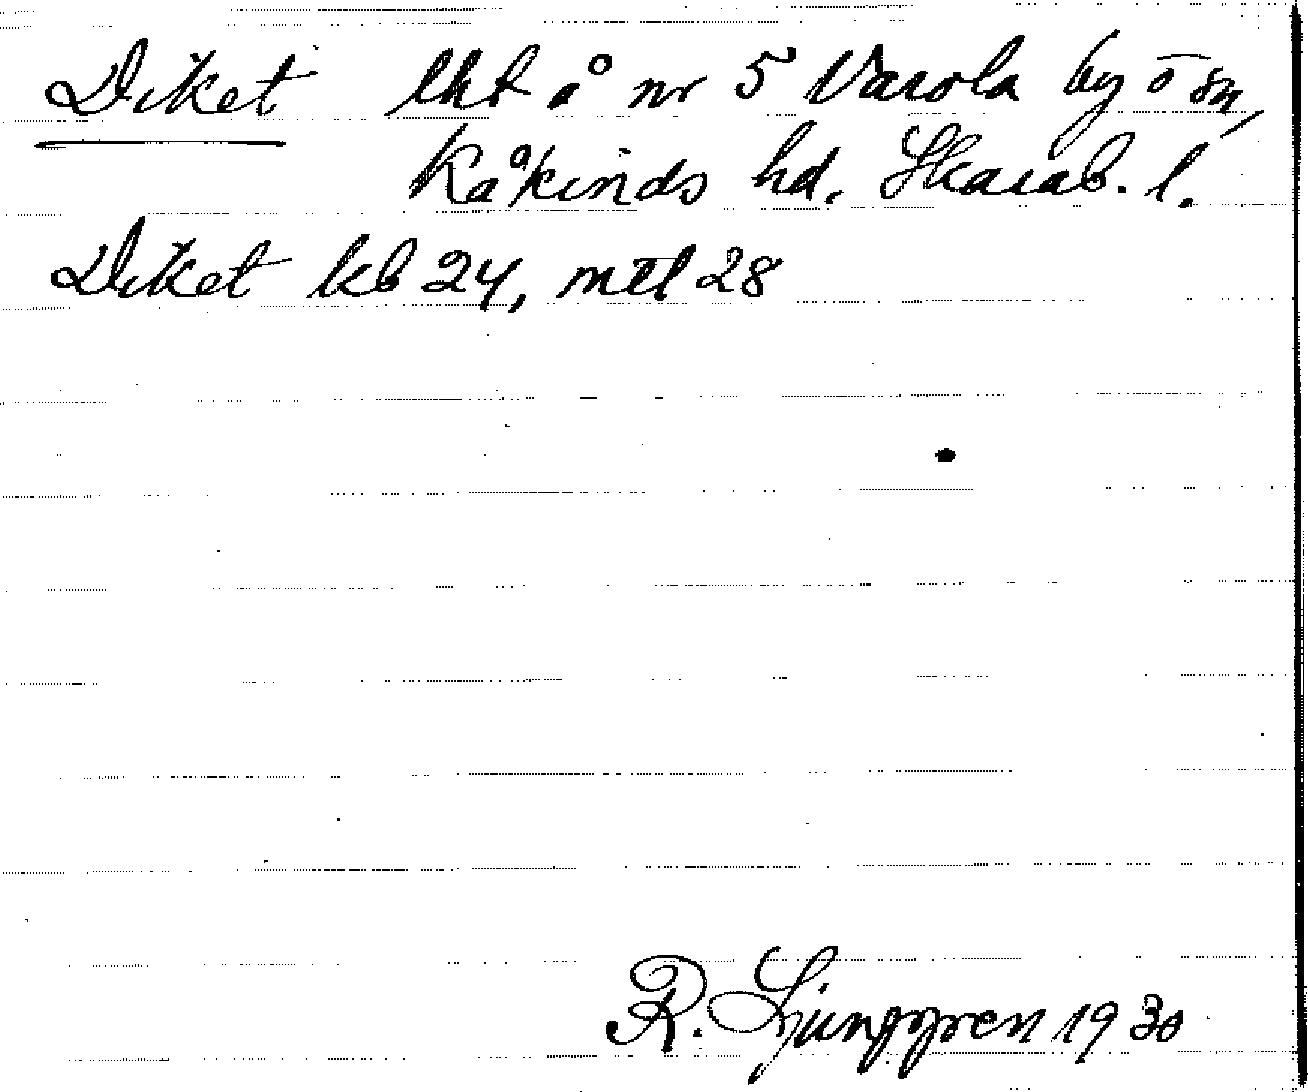 Diket lht å nr 5 Varola by o sn,
Kåkinds hd. Skarab. l.
Diket kb 24, mtl 28
R. Ljunggren 1930